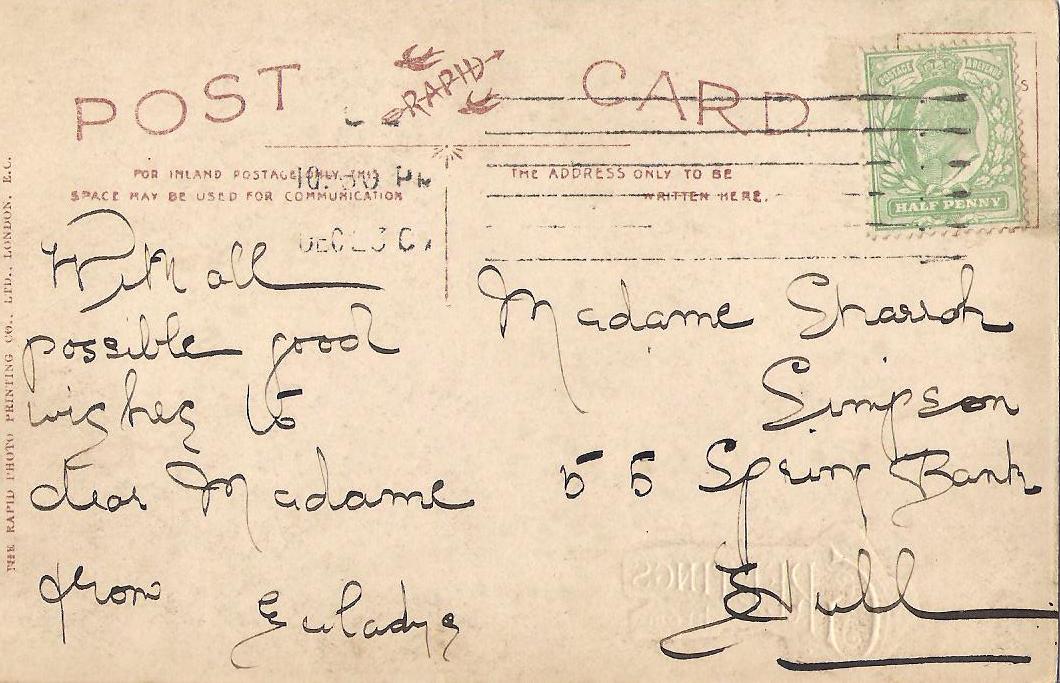 POST CARD
RAPID
POSTAGE & REVENUE
HALF PENNY
FOR INLAND POSTAGE ONLY THIS
SPACE MAY BE USED FOR COMMUNICATION
THE ADDRESS ONLY TO BE
WRITTEN HERE.
10.30 PM
DEC 23 07
With all
possible good
wishes to
dear Madame
from
Madame Sharrah
Simpson
55 Spring Bank
Hull
GREETINGS
THE RAPID PHOTO PRINTING CO., LTD., LONDON, E.C.